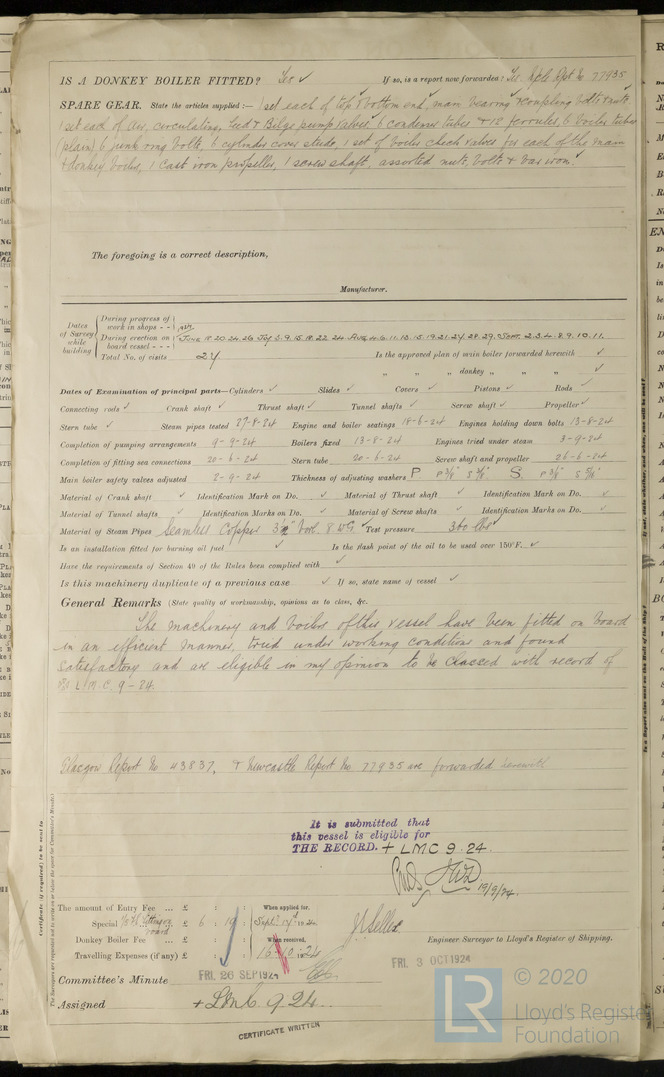 IS A DONKEY BOILER FITTED? Yes ✓ If so, is a report now forwarded: Yes. Ncle Rpt No 77935
SPARE GEAR. State the articles supplied:— 1 set each of top & bottom end, main bearing & coupling bolts & nuts
1 set each of air, circulating, feed & Bilge pump valves 6 condenser tubes & 12 ferrules, 6 boiler tubes
(plain) 6 junk ring bolts, 6 cylinder cover studs, 1 set of boiler check valves for each of the main
& donkey boiler, 1 cast iron propeller, 1 screw shaft, assorted nuts, bolts & bar iron ✓
The foregoing is a correct description,
Manufacturer.
Dates of Survey while building
During progress of work in shops - -
During erection on board vessel - - -
Total No. of visits 24
Is the approved plan of main boiler forwarded herewith ✓
" " " donkey " " " ✓
Dates of Examination of principal parts—Cylinders ✓ Slides ✓ Covers ✓ Pistons ✓ Rods ✓
Connecting rods ✓ Crank shaft ✓ Thrust shaft ✓ Tunnel shafts ✓ Screw shaft ✓ Propeller ✓
Stern tube ✓ Steam pipes tested 27-8-24 Engine and boiler seatings 18-6-24 Engines holding down bolts 13-8-24
Completion of pumping arrangements 9-9-24 Boilers fixed 13-8-24 Engines tried under steam 3-9-24
Completion of fitting sea connections 20-6-24 Stern tube 20-6-24 Screw shaft and propeller 26-6-24
Main boiler safety valves adjusted 2-9-24 Thickness of adjusting washers P P 3/8" S 3/8" S. P 3/8" S 5/16"
Material of Crank shaft ✓ Identification Mark on Do. ✓ Material of Thrust shaft ✓ Identification Mark on Do. ✓
Material of Tunnel shafts ✓ Identification Marks on Do. ✓ Material of Screw shafts ✓ Identification Marks on Do. ✓
Material of Steam Pipes Seamless Copper 8 WG ✓ Test pressure 360 lbs ✓
Is an installation fitted for burning oil fuel ✓ Is the flash point of the oil to be used over 150°F. ✓
Have the requirements of Section 49 of the Rules been complied with ✓
Is this machinery duplicate of a previous case ✓ If so, state name of vessel ✓
General Remarks (State quality of workmanship, opinions as to class, &c.
The machinery and boilers of this vessel have been fitted on board
in an efficient manner, tried under working conditions and found
satisfactory and are eligible in my opinion to be classed with record of
L.M.C. 9-24.
Glasgow Report No 43837, & Newcastle Report No 77935 are forwarded herewith
It is submitted that
this vessel is eligible for
THE RECORD. + LMC 9.24.
19/9/24.
The amount of Entry Fee ... £ : :
Special ... £ 6 : 19 :
Donkey Boiler Fee ... £ : :
Travelling Expenses (if any) £ : :
When applied for,
Sept. 17th 1924
When received,
16-10-24
Engineer Surveyor to Lloyd's Register of Shipping.
Committee's Minute FRI. 26 SEP 1924
FRI. 3 OCT 1924
Assigned + LMC 9.24
CERTIFICATE WRITTEN
© 2020
LR
Lloyd's Register
Foundation